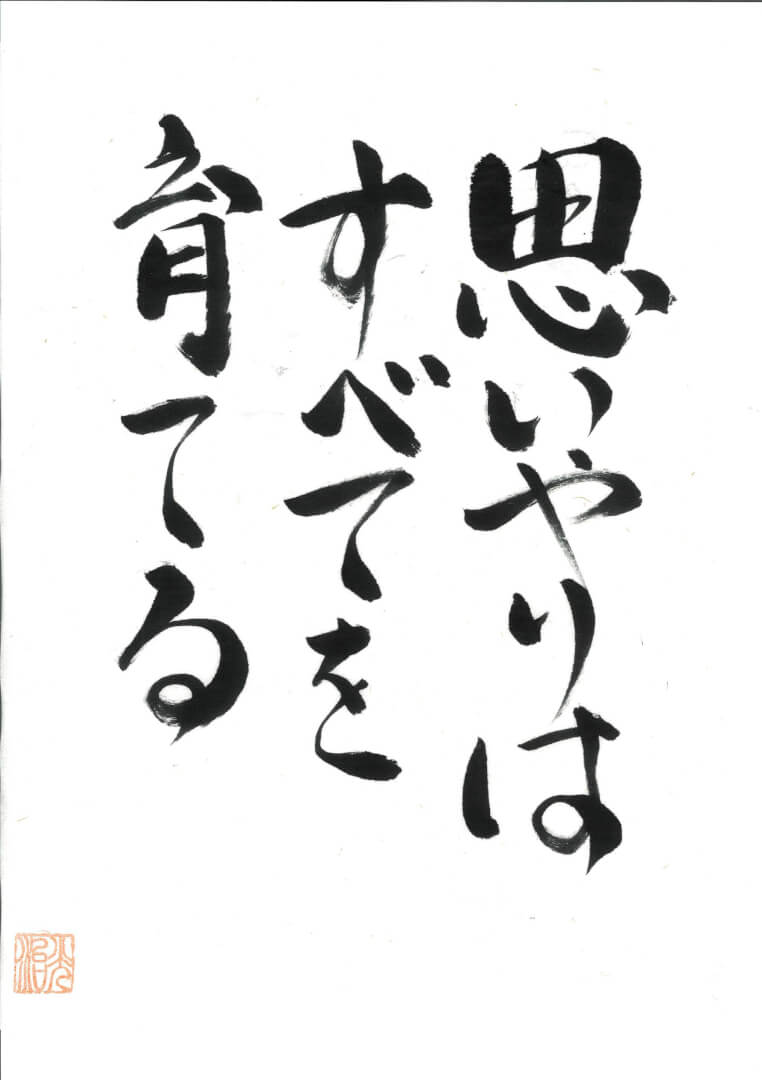 思いやりは
すべてを
育てる